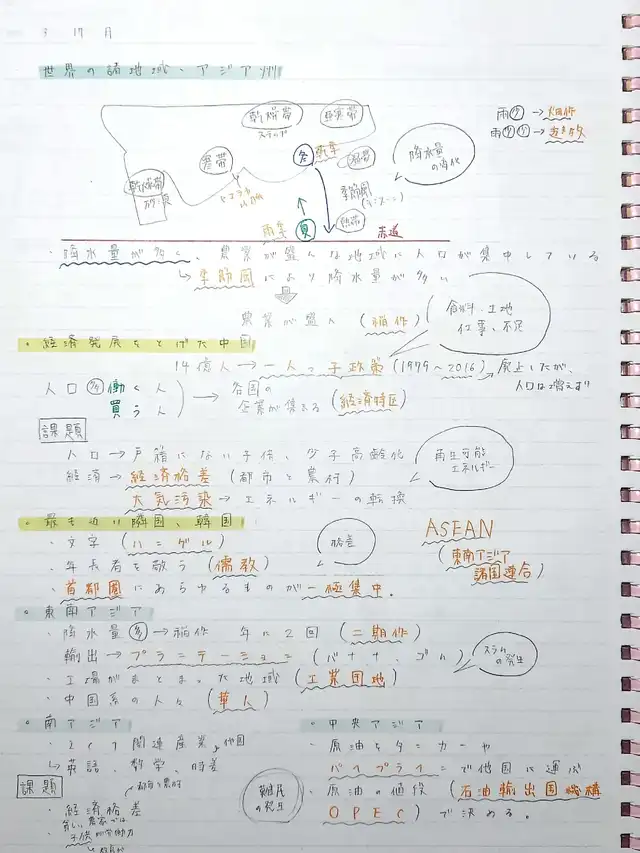 3 17 月
世界の諸地域、アジア州
乾燥帯 亜寒帯
ステップ
雨少→畑作
雨少少→遊牧
冬 乾季 温帯
降水量の変化
寒帯
乾燥帯
砂漠
ヒマラヤ山脈
季節風
(モンスーン)
熱帯
雨季 夏 赤道
・降水量が多く、農業が盛んな地域に人口が集中している
↳季節風により降水量が多い
農業が盛ん(稲作)
食料、土地
仕事、不足
。経済発展をとげた中国
14億人→一人っ子政策(1979~2016)廃止したが、
人口は増えず
人口多 働く人
買う人
→各国の
企業が集まる(経済特区)
課題
人口→戸籍にない子供、少子高齢化
経済→経済格差(都市と農村)
大気汚染→エネルギーの転換
再生可能
エネルギー
。最も近い隣国、韓国
・文字(ハングル)
・年長者を敬う(儒教)
格差
・首都圏にあらゆるものが一極集中.
ASEAN
(東南アジア
諸国連合)
。東南アジア
・降水量多→稲作 年に2回(二期作)
輸出→プランテーション(バナナ、ゴム)
・工場がまとまった地域(工業団地)
・中国系の人々(華人)
スラムの発生
。南アジア
・ICT関連産業
↳英語、数学、時差
課題
都市と農村
・経済格差
貧しい農家では
・子供が労働力
難民の発生
。中央アジア
・原油をタンカーや
パイプラインで他国に運ぶ
・原油の値段(石油輸出国機構
OPEC)で決める.